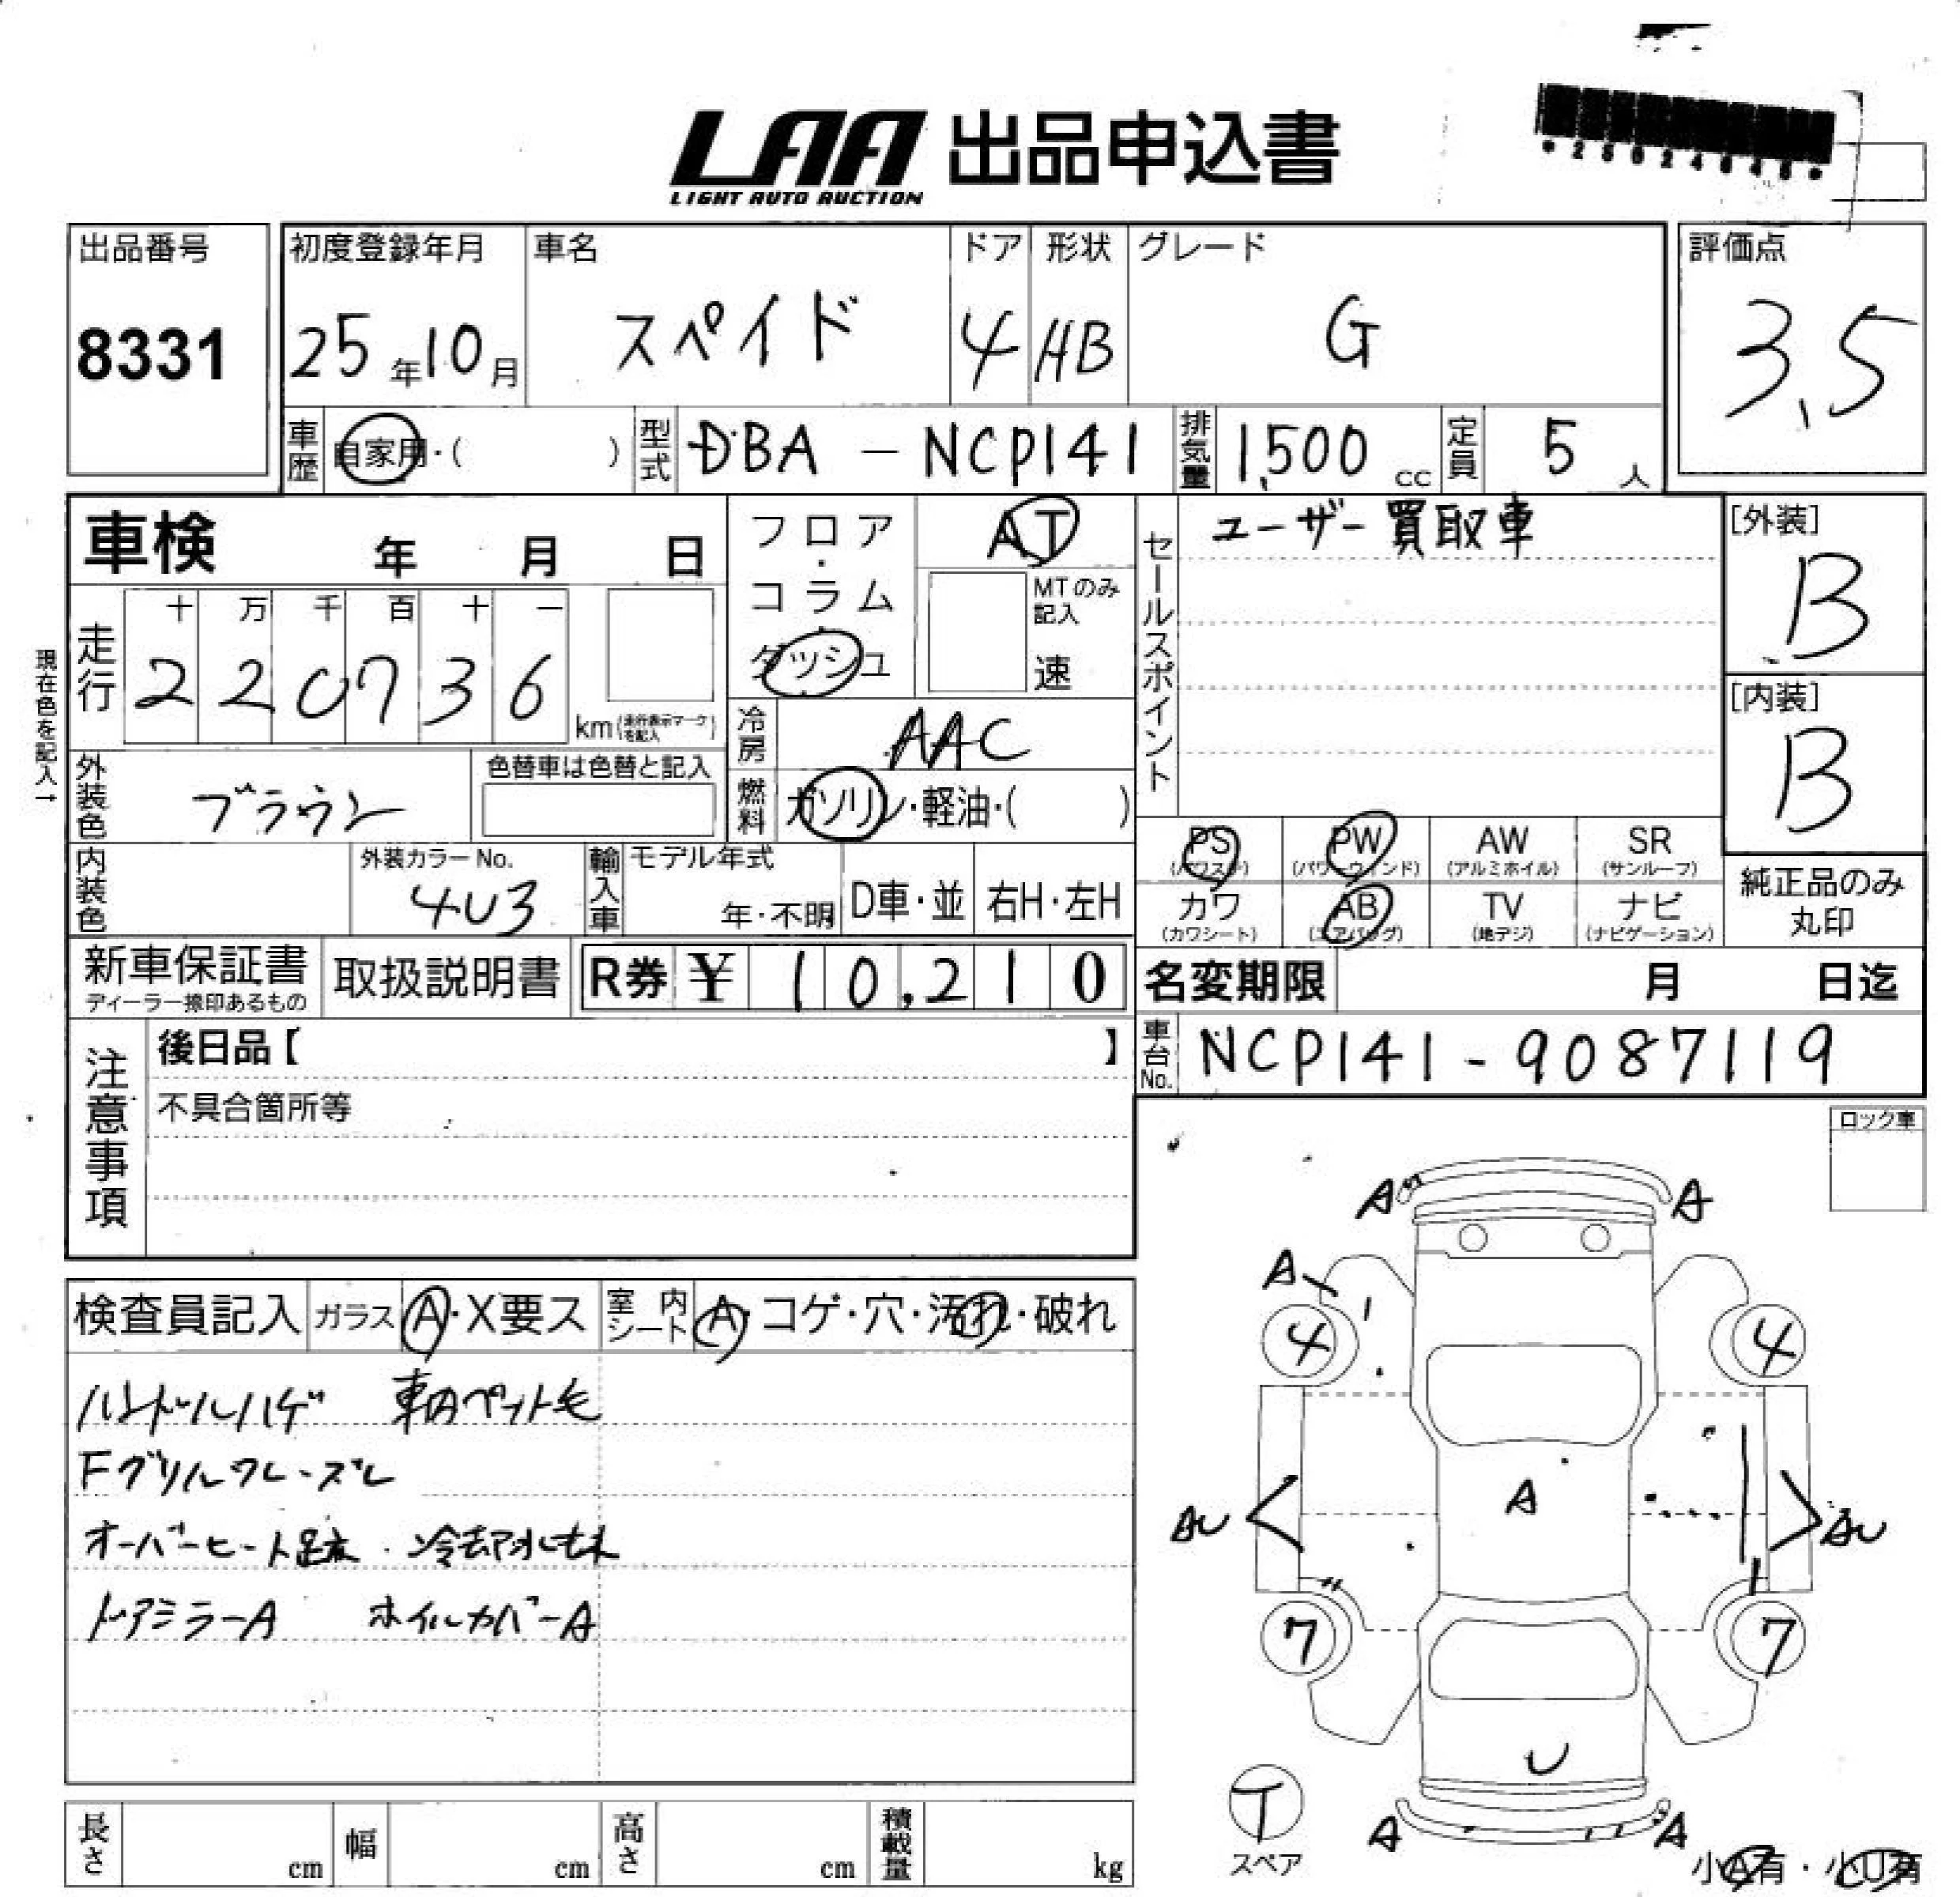 LAA 出品申込書
LIGHT AUTO AUCTION
出品番号
8331
初度登録年月
25年10月
車名
スペイド
ドア
4
形状
HB
グレード
G
評価点
3.5
車歴 自家用・( )
型式 DBA - NCP141
排気量 1,500 cc
定員 5 人
車検 年 月 日
フロア・コラム・ダッシュ
AT
MTのみ記入
速
現在色を記入→
走行
十 万 千 百 十 一
2 2 0 7 3 6
km(走行表示マークを記入)
冷房 AAC
外装色 ブラウン
色替車は色替と記入
燃料 ガソリン・軽油・( )
内装色
外装カラーNo.
4U3
輸入車 モデル年式
年・不明
D車・並
右H・左H
セールスポイント
ユーザー買取車
[外装]
B
[内装]
B
PS PW AW SR
(パワステ) (パワーウィンド) (アルミホイル) (サンルーフ)
カワ AB TV ナビ
(カワシート) (エアバッグ) (地デジ) (ナビゲーション)
純正品のみ
丸印
新車保証書
ディーラー捺印あるもの
取扱説明書
R券 ¥ 10,210
名変期限 月 日迄
車台No. NCP141-9087119
注意事項
後日品【 】
不具合箇所等
ロック車
検査員記入 ガラス A・X要ス 室内シート A・コゲ・穴・汚れ・破れ
ハンドルハゲ 車内ペット毛
Fグリルワレ・ズレ
オーバーヒート歴有 冷却水モレ
ドアミラーA ホイルカバーA
A A
A
4 4
AU A AU
7 7
U
T
スペア
A A
小A有・小U有
長さ cm 幅 cm 高さ cm 積載量 kg